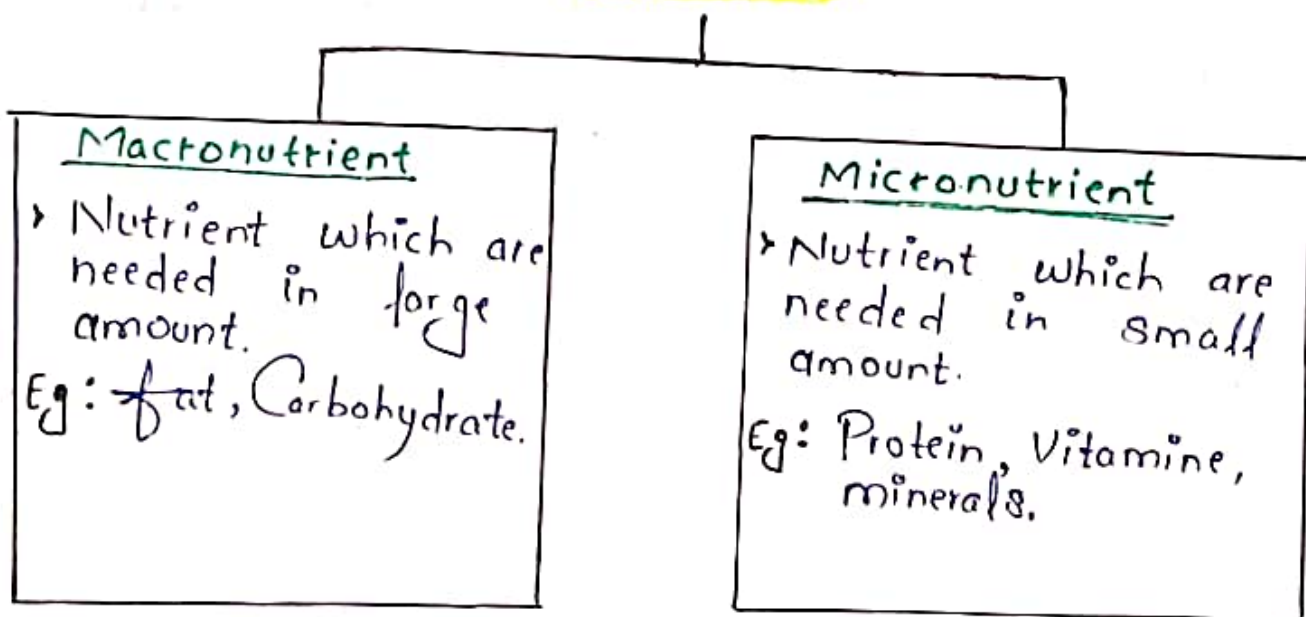 Macronutrient
› Nutrient which are
needed in large
amount.
Eg: fat, Carbohydrate.
Micronutrient
› Nutrient which are
needed in small
amount.
Eg: Protein, Vitamine,
minerals.